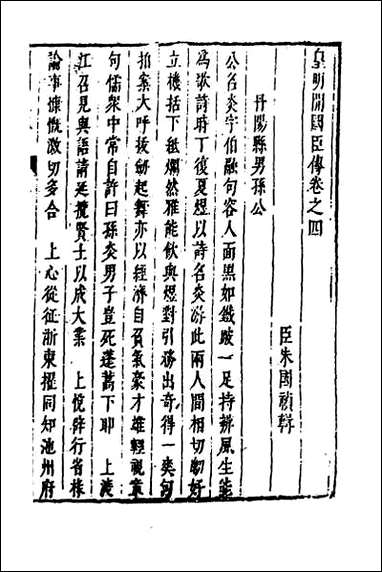 皇明開國臣傳卷之四
臣朱國禎輯
丹陽縣男孫公
公名炎字伯融句容人面黑如鐵跛一足持辨風生能
為歌詩時丁復夏煜以詩名炎游此兩人間相切劘好
立機括下紙爛然雅能飲與煜對引務出奇得一奕句
拍案大呼拔劒起舞亦以經濟自負氣豪才雄輕視章
句儒衆中常自許曰孫炎男子豈死蓬蒿下耶　上渡
江召見與語請延攬賢士以成大業　上悅辟行省掾
論事慷慨激切多合　上心從征浙東擢同知池州府